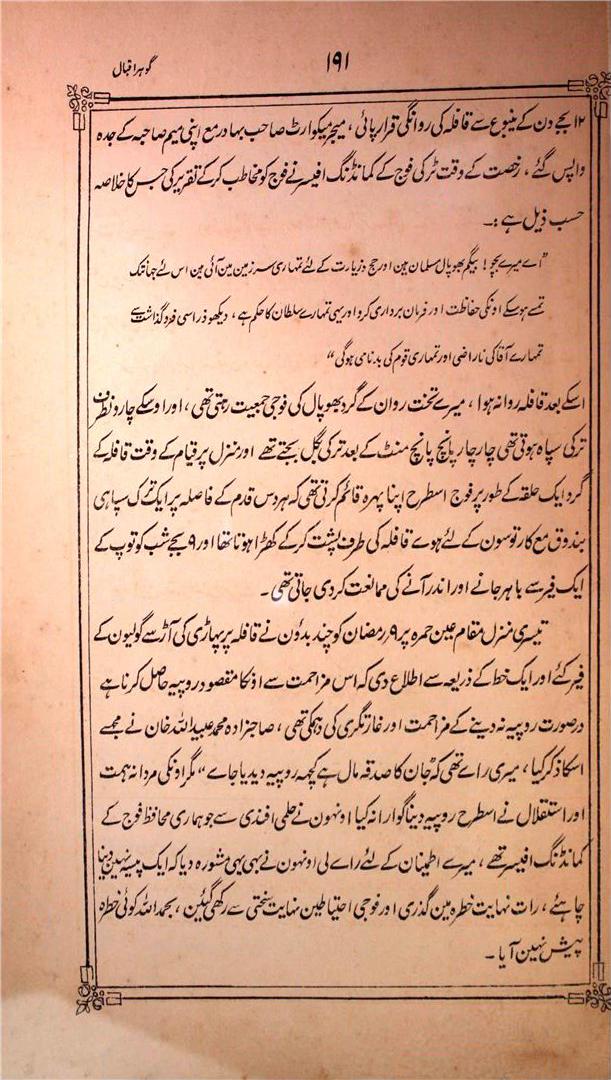 گوہر اقبال
۱۹۱
۱۲ بجے دن کے ینبوع سے قافلہ کی روانگی قرار پائی ، میجر میکوارٹ صاحب بہادر مع اپنی میم صاحبہ کے جدہ
واپس گئے ، رخصت کے وقت ٹرکی فوج کے کمانڈنگ افیسر نے فوج کو مخاطب کرکے تقریر کی جس کا خلاصہ
حسب ذیل ہے :۔
"اے میرے بچو ! بیگم بھوپال مسلمان ہین اور حج و زیارت کے لئے تمہاری سرزمین مین آئی ہین اس لئے جہانتک
تمسے ہوسکے اونکی حفاظت اور فرمان برداری کرو اور یہی تمہارے سلطان کا حکم ہے ، دیکھو ذراسی فروگذاشت سے
تمہارے آقا کی ناراضی اور تمہاری قوم کی بدنامی ہوگی"
اسکے بعد قافلہ روانہ ہوا ، میرے تخت روان کے گرد بھوپال کی فوجی جمعیت رہتی تھی ، اور اوسکے چارونطرف
ترکی سپاہ ہوتی تھی چار چار پانچ پانچ منٹ کے بعد ترکی بگل بجتے تھے اور منزل پر قیام کے وقت قافلہ کے
گرد ایک حلقہ کے طور پر فوج اسطرح اپنا پہرہ قائم کرتی تھی کہ ہر دس قدم کے فاصلہ پر ایک ترک سپاہی
بندوق مع کارتوسون کے لئے ہوے قافلہ کی طرف پشت کرکے کھڑا ہوتا تھا اور ۹ بجے شب کو توپ کے
ایک فیر سے باہر جانے اور اندر آنے کی ممانعت کردی جاتی تھی ۔
تیسری منزل مقام عین حمرہ پر ۹ رمضان کو چند بدؤن نے قافلہ پر پہاڑی کی آڑ سے گولیون کے
فیر کئے اور ایک خط کے ذریعہ سے اطلاع دی کہ اس مزاحمت سے اونکا مقصود روپیہ حاصل کرنا ہے
درصورت روپیہ نہ دینے کے مزاحمت اور غارتگری کی دہمکی تھی ، صاحبزادہ محمد عبید اللہ خان نے مجھسے
اسکا ذکر کیا ، میری راے تھی کہ "جان کا صدقہ مال ہے کچھہ روپیہ دیدیا جاے" مگر اونکی مردانہ ہمت
اور استقلال نے اسطرح روپیہ دینا گوارا نہ کیا اونہون نے حلمی افندی سے جو ہماری محافظ فوج کے
کمانڈنگ افیسر تھے ، میرے اطمینان کے لئے راے لی اونہون نے بھی یہی مشورہ دیا کہ ایک پیسہ نہین دینا
چاہئے ، رات نہایت خطرہ مین گذری اور فوجی احتیاطین نہایت سختی سے رکھی گئین ، بحمد اللہ کوئی خطرہ
پیش نہین آیا ۔